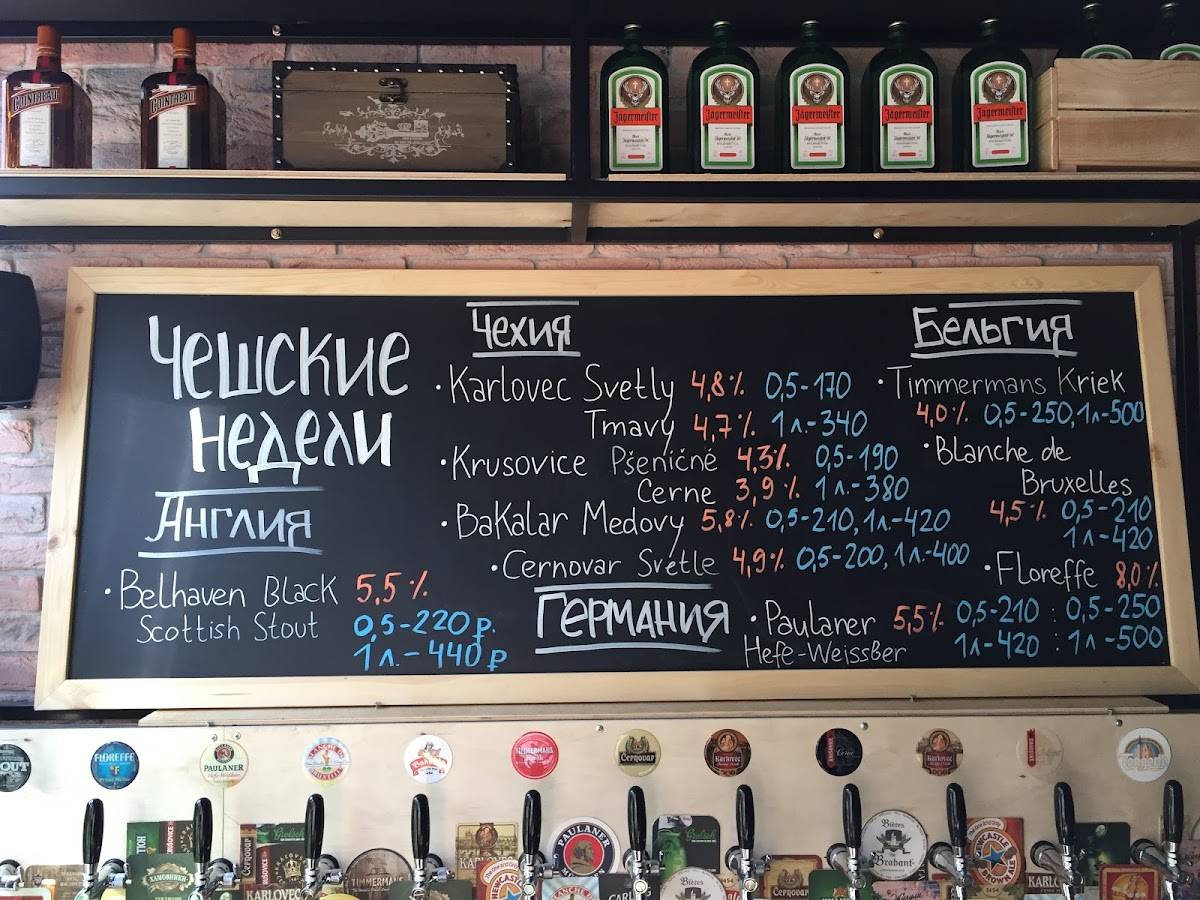 COINTREAU
COINTREAU
Jägermeister
Jägermeister
Jägermeister
Jägermeister
Jägermeister
Чешские
недели
Англия
·Belhaven Black 5,5%
Scottish Stout 0,5-220 р.
1 л.-440 ₽
Чехия
·Karlovec Svetly 4,8% 0,5-170
Tmavy 4,7% 1 л.-340
·Krusovice Pšeničné 4,3% 0,5-190
Cerne 3,9% 1 л.-380
·Bakalar Medovy 5,8% 0,5-210, 1 л.-420
·Cernovar Světle 4,9% 0,5-200, 1 л.-400
Германия
·Paulaner 5,5% 0,5-210
Hefe-Weissßer 1 л.-420
Бельгия
·Timmermans Kriek
4,0% 0,5-250, 1 л.-500
·Blanche de
Bruxelles
4,5% 0,5-210
1 л.-420
·Floreffe 8,0%
: 0,5-250
: 1 л-500
OUT
FLOREFFE
PAULANER
Hefe-Weißbier
TIMMERMANS
ČERNOVAR
Karlovec
Karlovec
Grolsch
PAULANER
Grolsch
Bières
Brabant
NEWCASTLE
BROWN ALE
ХАМОВНИКИ
KARLOVEC
TIMMERMANS
KARLOVEC
NEWCASTLE
Bières
ČERNOVAR